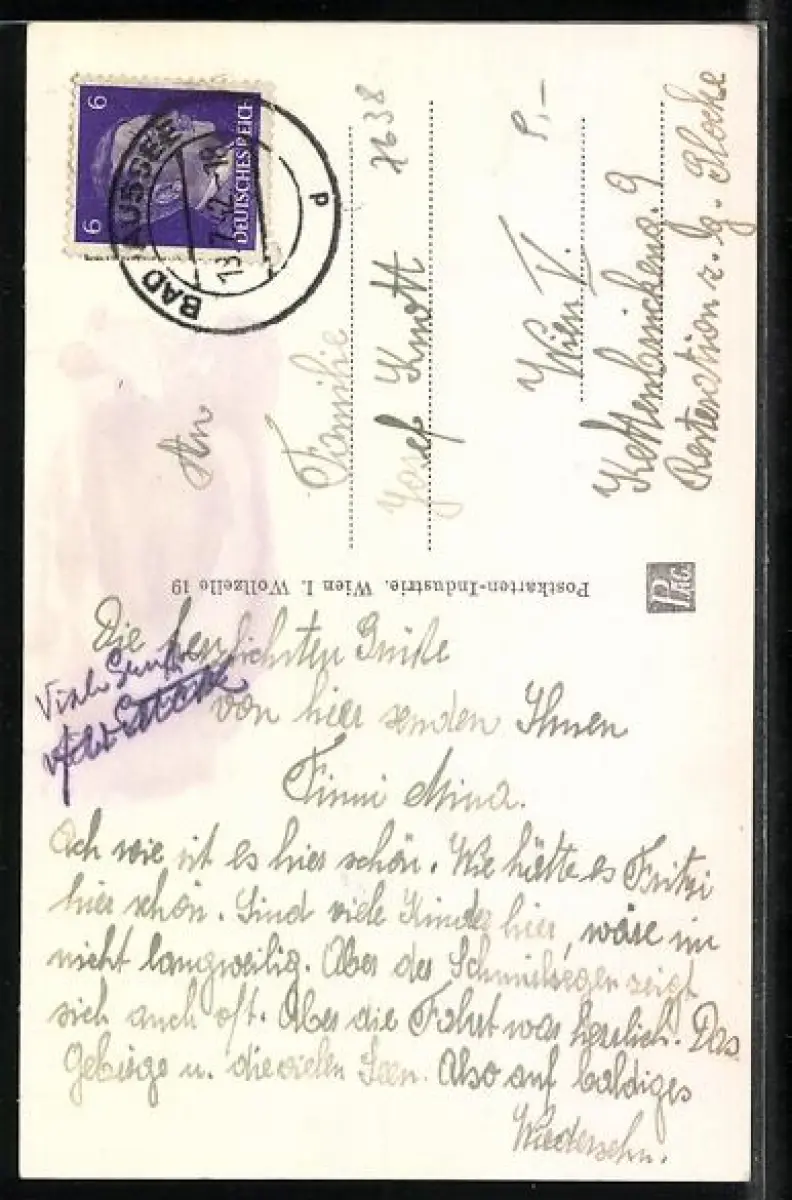 6 6
DEUTSCHES REICH
BAD AUSSEE
13.7.42.18
d
7638
P,-
An
Familie
Josef Knott
Wien V.
Kettenbrückeng. 9
Restauration z. g. Glocke
Postkarten-Industrie, Wien I. Wollzeile 19
PAG
Die herzlichsten Grüße
von hier senden Ihnen
Finni Mina.
Viele Grüße
Ach wie ist es hier schön. Wie hätte es Fritzi
hier schön. Sind viele Kinder hier, wäre im
nicht langweilig. Aber der Schnürlregen zeigt
sich auch oft. Aber die Fahrt war herrlich. Das
Gebirge u. die vielen Seen. Also auf baldiges
Wiedersehn.